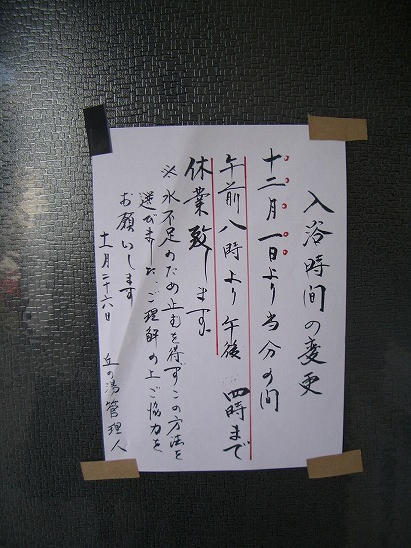 入浴時間の変更
十二月一日より当分の間
午前八時より午後四時まで
休業致します
※水不足のため止むを得ずこの方法を
選びましたご理解の上ご協力を
お願いします
十一月二十六日 丘の湯管理人